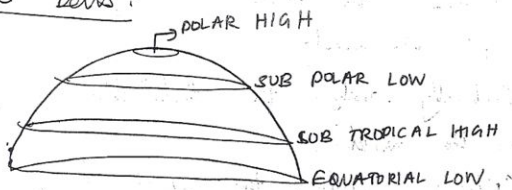 POLAR HIGH
SUB POLAR LOW
SUB TROPICAL HIGH
EQUATORIAL LOW.